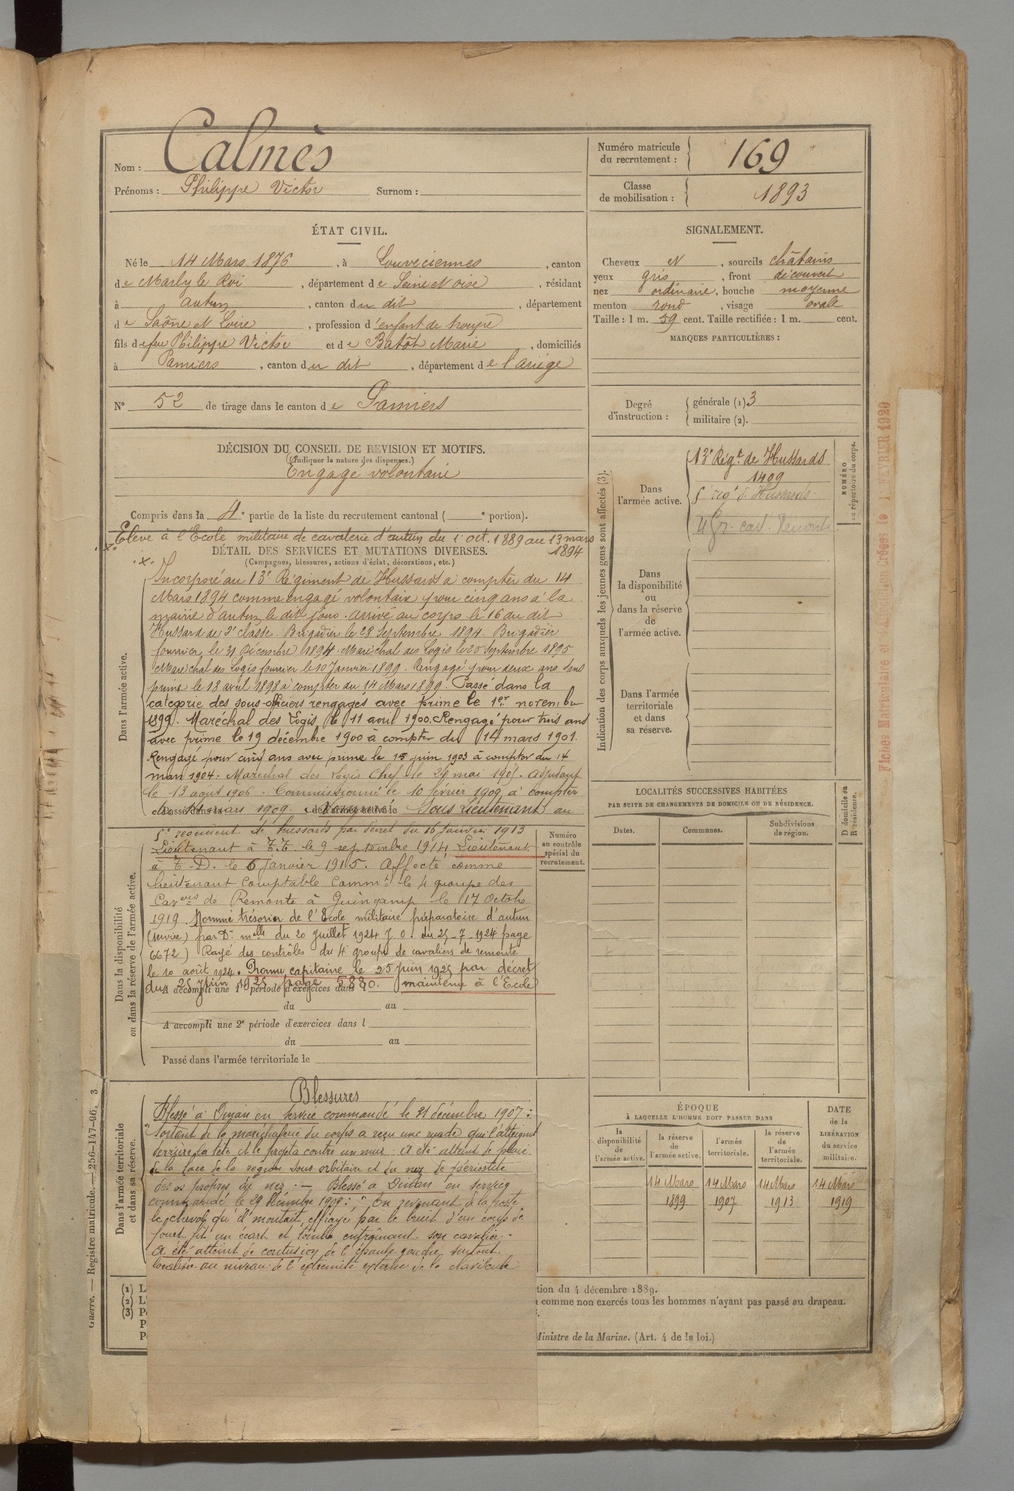 Nom : Calmès
Prénoms : Philippe Victor Surnom :
Numéro matricule du recrutement : 169
Classe de mobilisation : 1893
ÉTAT CIVIL.
Né le 14 Mars 1876, à Louveciennes, canton
de Marly le Roi, département de Seine et Oise, résidant
à Autun, canton du dit, département
de Saône et Loire, profession d'enfant de troupe
fils de feu Philippe Victor et de Batôt Marie, domiciliés
à Pamiers, canton du dit, département de l'ariège
N° 52 de tirage dans le canton de Pamiers
SIGNALEMENT.
Cheveux N, sourcils châtains
yeux gris, front découvert
nez ordinaire, bouche moyenne
menton rond, visage ovale
Taille : 1 m. 59 cent. Taille rectifiée : 1 m. cent.
MARQUES PARTICULIÈRES :
Degré d'instruction : générale (1) 3
militaire (2).
DÉCISION DU CONSEIL DE REVISION ET MOTIFS.
(Indiquer la nature des dispenses.)
Engagé volontaire
Compris dans la 4e partie de la liste du recrutement cantonal ( e portion).
Elève à l'Ecole militaire de cavalerie d'autun du 1 oct. 1889 au 13 mars 1894
DÉTAIL DES SERVICES ET MUTATIONS DIVERSES.
(Campagnes, blessures, actions d'éclat, décorations, etc.)
Dans l'armée active.
Incorporé au 13e Régiment de Hussards à compter du 14
Mars 1894 comme engagé volontaire pour cinq ans à la
mairie d'autun le dit jour. arrivé au corps le 16 du dit
Hussard de 2e classe. Brigadier le 28 Septembre 1894. Brigadier
fourrier le 31 Décembre 1894. Maréchal des Logis le 20 Septembre 1895
Maréchal des Logis fourrier le 10 Janvier 1899. Rengagé pour deux ans sans
prime le 18 avril 1898 à compter du 14 Mars 1899. Passé dans la
catégorie des sous-officiers rengagés avec prime le 1er novembre
1899. Maréchal des Logis le 11 avril 1900. Rengagé pour trois ans
avec prime le 19 décembre 1900 à compter du 14 mars 1901.
Rengagé pour cinq ans avec prime le 15 juin 1903 à compter du 14
mars 1904. Maréchal des Logis Chef le 29 mai 1905. adjudant
le 13 août 1906. Commissionné le 10 février 1909 à compter
du 14 mars 1909. Sous lieutenant au
Dans la disponibilité ou dans la réserve de l'armée active.
régiment de hussards par décret du 16 Janvier 1913
Lieutenant à T.T. le 9 septembre 1914 Lieutenant
à T.D. le 6 Janvier 1915. Affecté comme
lieutenant comptable Commt le 4 groupe des
Cavers de Remonte à Guingamp le 17 Octobre
1919. Nommé trésorier de l'Ecole militaire préparatoire d'autun
(suivre) par Dn mlle du 20 juillet 1924 J.O. du 25-7-1924 page
6672) Rayé des contrôles du 4e groupe de cavaliers de remonte
le 10 août 1924. Promu capitaine le 25 juin 1925 par décret
du 25 juin 1925, page 5880. maintenu à l'Ecole
A accompli une 1re période d'exercices dans l
du au
A accompli une 2e période d'exercices dans l
du au
Passé dans l'armée territoriale le
Numéro au contrôle spécial du recrutement.
Dans l'armée territoriale et dans sa réserve.
Blessures
Blessé à Dinan en service commandé le 31 décembre 1907 :
Sortant de la maréchalerie du corps a reçu une ruade qui l'atteignit
derrière la tête et le projeta contre un mur. A été atteint de plaie
de la face de la région sous orbitaire et du nez de périostite
des os propres du nez. — Blessé à Dinan en service
commandé le 29 Décembre 1908 : " En revenant à la poste
le cheval qu'il montait, effrayé par le bruit d'un coup de
fouet fit un écart et tomba entraînant son cavalier.
A été atteint de contusion de l'épaule gauche surtout
localisée au niveau de l'extrémité externe de la clavicule
Indication des corps auxquels les jeunes gens sont affectés (3).
Dans l'armée active.
13e Régt de Hussards
1409
4e Gr. cav. Remonte
Dans la disponibilité ou dans la réserve de l'armée active.
Dans l'armée territoriale et dans sa réserve.
NUMÉRO au répertoire du corps.
LOCALITÉS SUCCESSIVES HABITÉES
PAR SUITE DE CHANGEMENTS DE DOMICILE OU DE RÉSIDENCE.
Dates. Communes. Subdivisions de région. D domicile ou R résidence.
ÉPOQUE
À LAQUELLE L'HOMME DOIT PASSER DANS
la disponibilité de l'armée active. la réserve de l'armée active. l'armée territoriale. la réserve de l'armée territoriale.
DATE de la LIBÉRATION du service militaire.
14 Mars 1899 14 Mars 1907 14 Mars 1913 14 Mars 1919
(1) L
(2) L'
(3) P
P
P
tion du 4 décembre 1889.
comme non exercés tous les hommes n'ayant pas passé au drapeau.
Ministre de la Marine. (Art. 4 de la loi.)
Guerre. — Registre matricule. — 256-147-96. 3